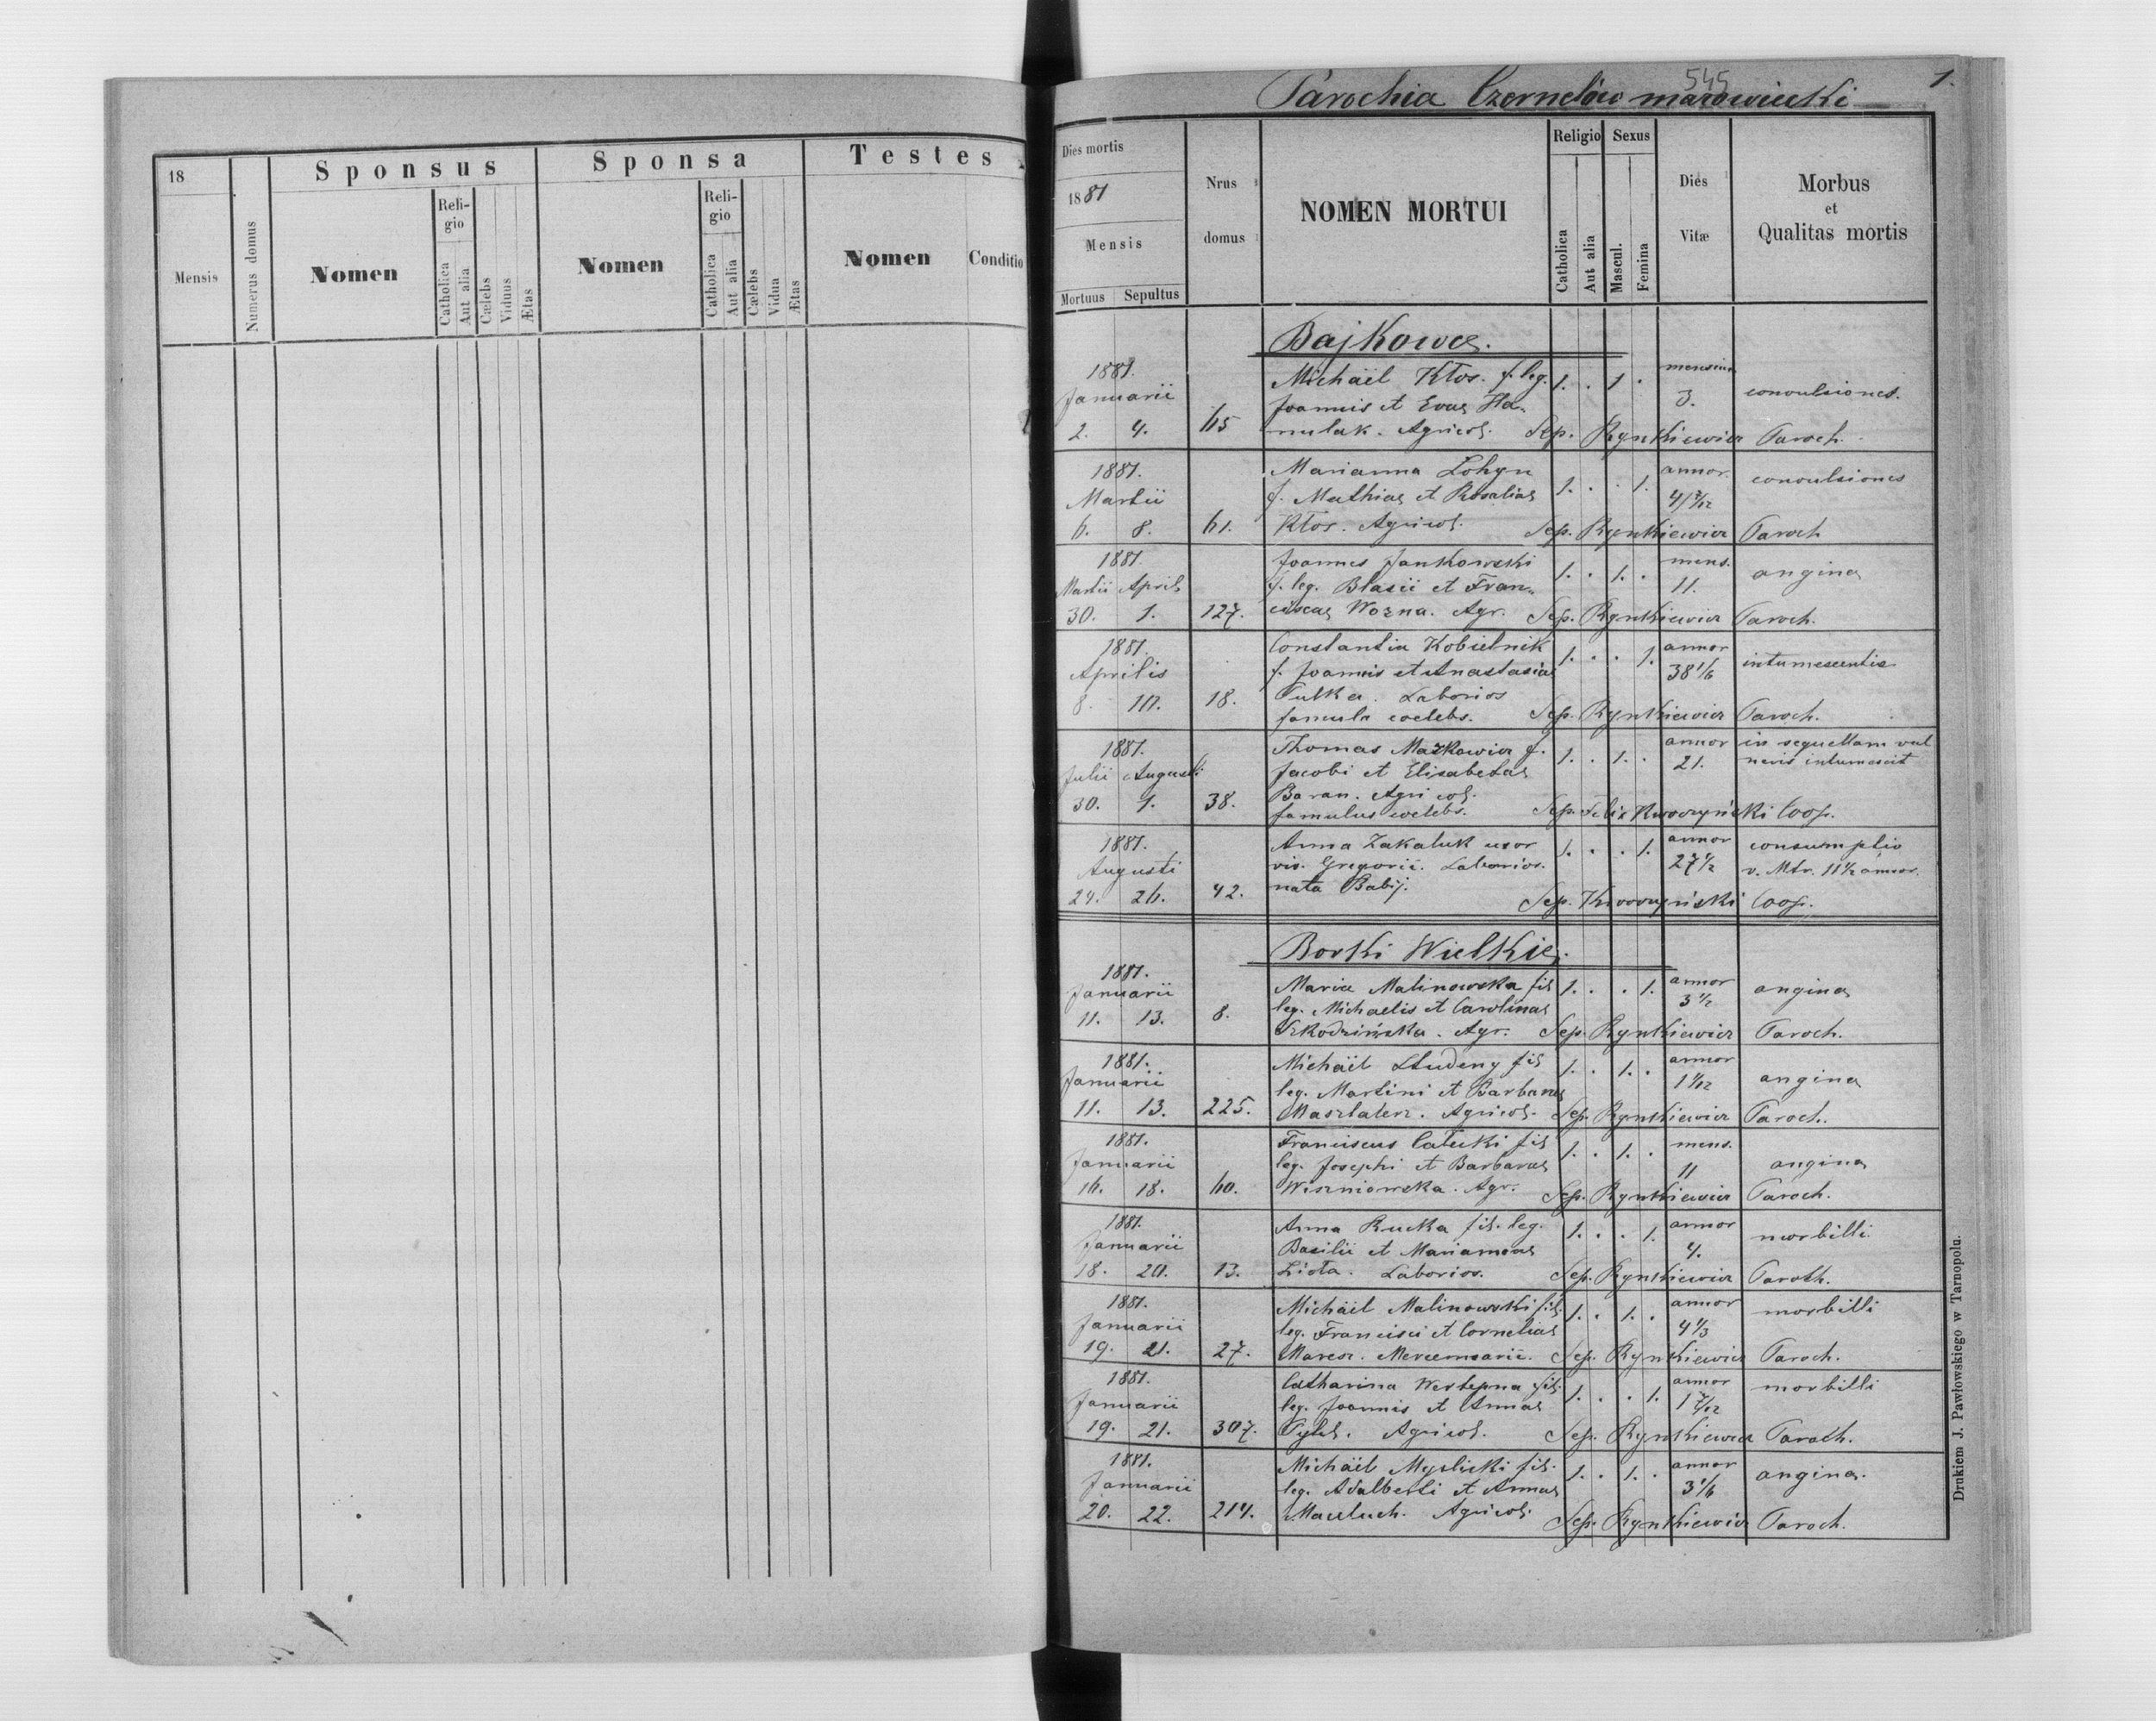 18
Mensis
Numerus domus
Sponsus
Nomen
Reli-
gio
Catholica
Aut alia
Cælebs
Viduus
Ætas
Sponsa
Nomen
Reli-
gio
Catholica
Aut alia
Cælebs
Vidua
Ætas
Testes
Nomen
Conditio
545
1.
Parochia Czernelów mazowiecki
Dies mortis
1881
Mensis
Mortuus Sepultus
Nrus
domus
NOMEN MORTUI
Religio
Catholica
Aut alia
Sexus
Mascul.
Femina
Dies
Vitæ
Morbus
et
Qualitas mortis
Bajkowce.
1881. Michäel Kłos. f. leg. 1. . 1 . mensium
Januarii Joannis et Evae Ha- 3. convulsiones.
2. 4. 65 mulak. Agricol. Sep. Rynkiewicz Paroch.
1881. Marianna Lohyn annor.
Martii f. Mathiae et Rosaliae 1. . . 1. 4 7/12 convulsiones
6. 8. 61. Kłos. Agricol. Sep. Rynkiewicz Paroch
1881. Joannes Jankowski 1. . 1. . mens.
Martii Aprils f. leg. Blasii et Fran- 11. angina
30. 1. 127. ciscae Wozna. Agr. Sep. Rynkiewicz Paroch.
1881. Constantia Kobielnik 1. . . 1. annor
Aprilis f. Joannis et Anastasiae 38 1/6 intumescentia
8. 10. 18. Pulka. Laborios
famula coelebs. Sep. Rynkiewicz Paroch.
1881. Thomas Mazkowicz f. 1. . 1. . annor in sequellam vul
Julii Augusti Jacobi et Elisabetae 21. neris intumescit
30. 1. 38. Baran. Agricol.
famulus coelebs. Sep. Felix Kwoczyński Coop.
1881. Anna Zakaluk uxor 1. . . 1. annor consumptio
Augusti vir. Gregorii. Laborios. 27 1/2 v. Mtr. 11 1/2 annor.
24. 26. 42. nata Babij. Sep. Kwoczyński Coop.
Borki Wielkie.
1881. Maria Malinowska fil 1. . . 1. annor
Januarii leg. Michaelis et Carolinae 3 1/2 angina
11. 13. 8. Szkodzińska. Agr. Sep. Rynkiewicz Paroch.
1881. Michäel Studeny fil 1. . 1. . annor
Januarii leg. Martini et Barbarae 1 1/12 angina
11. 13. 225. Masztalerz. Agricol. Sep. Rynkiewicz Paroch.
1881. Franciscus Całucki fil 1. . 1. . mens.
Januarii leg. Josephi et Barbarae 11 angina
16. 18. 60. Wiszniowska. Agr. Sep. Rynkiewicz Paroch.
1881. Anna Rucka fil. leg. 1. . . 1. annor
Januarii Basilii et Mariannae 4. morbilli
18. 20. 13. Liota. Laborios. Sep. Rynkiewicz Paroch.
1881. Michäel Malinowski fil. 1. . 1. . annor morbilli
Januarii leg. Francisci et Corneliae 4 1/3
19. 21. 27. Marcor. Mercennarii. Sep. Rynkiewicz Paroch.
1881. Catharina Westepna fil. 1. . . 1. annor morbilli
Januarii leg. Joannis et Annae 1 7/12
19. 21. 307. Pylet. Agricol. Sep. Rynkiewicz Paroch.
1881. Michäel Myslicki fil. 1. . 1. . annor
Januarii leg. Adalberti et Annae 3 1/6 angina.
20. 22. 214. Maceluch. Agricol. Sep. Rynkiewicz Paroch.
Drukiem J. Pawłowskiego w Tarnopolu.